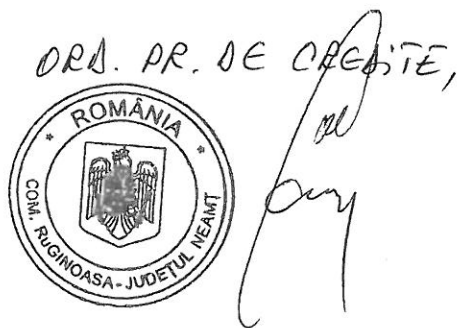 ORD. PR. DE CREDITE,
* ROMÂNIA *
COM. RUGINOASA - JUDEŢUL NEAMŢ